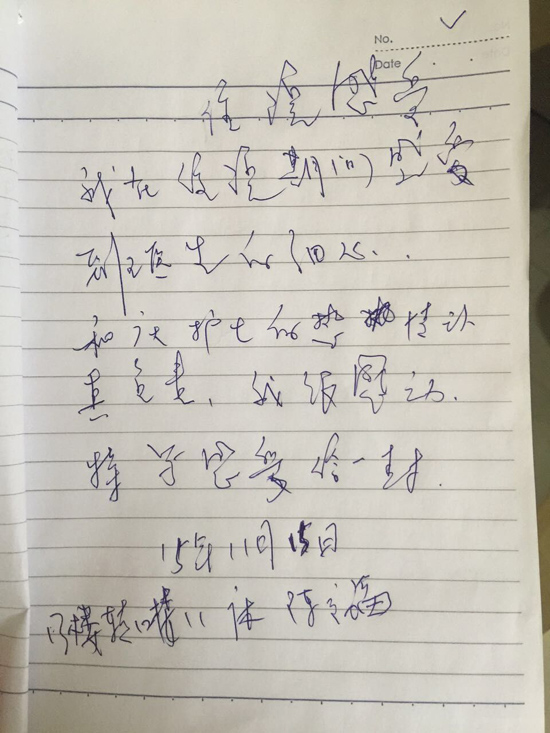 No.
Date
住院感受
我在住院期间感受
到医生的细心.
和护士的热情认
真负责, 我很感动.
特写感受给一封.
15年11月15日
13楼转12楼11床 陈